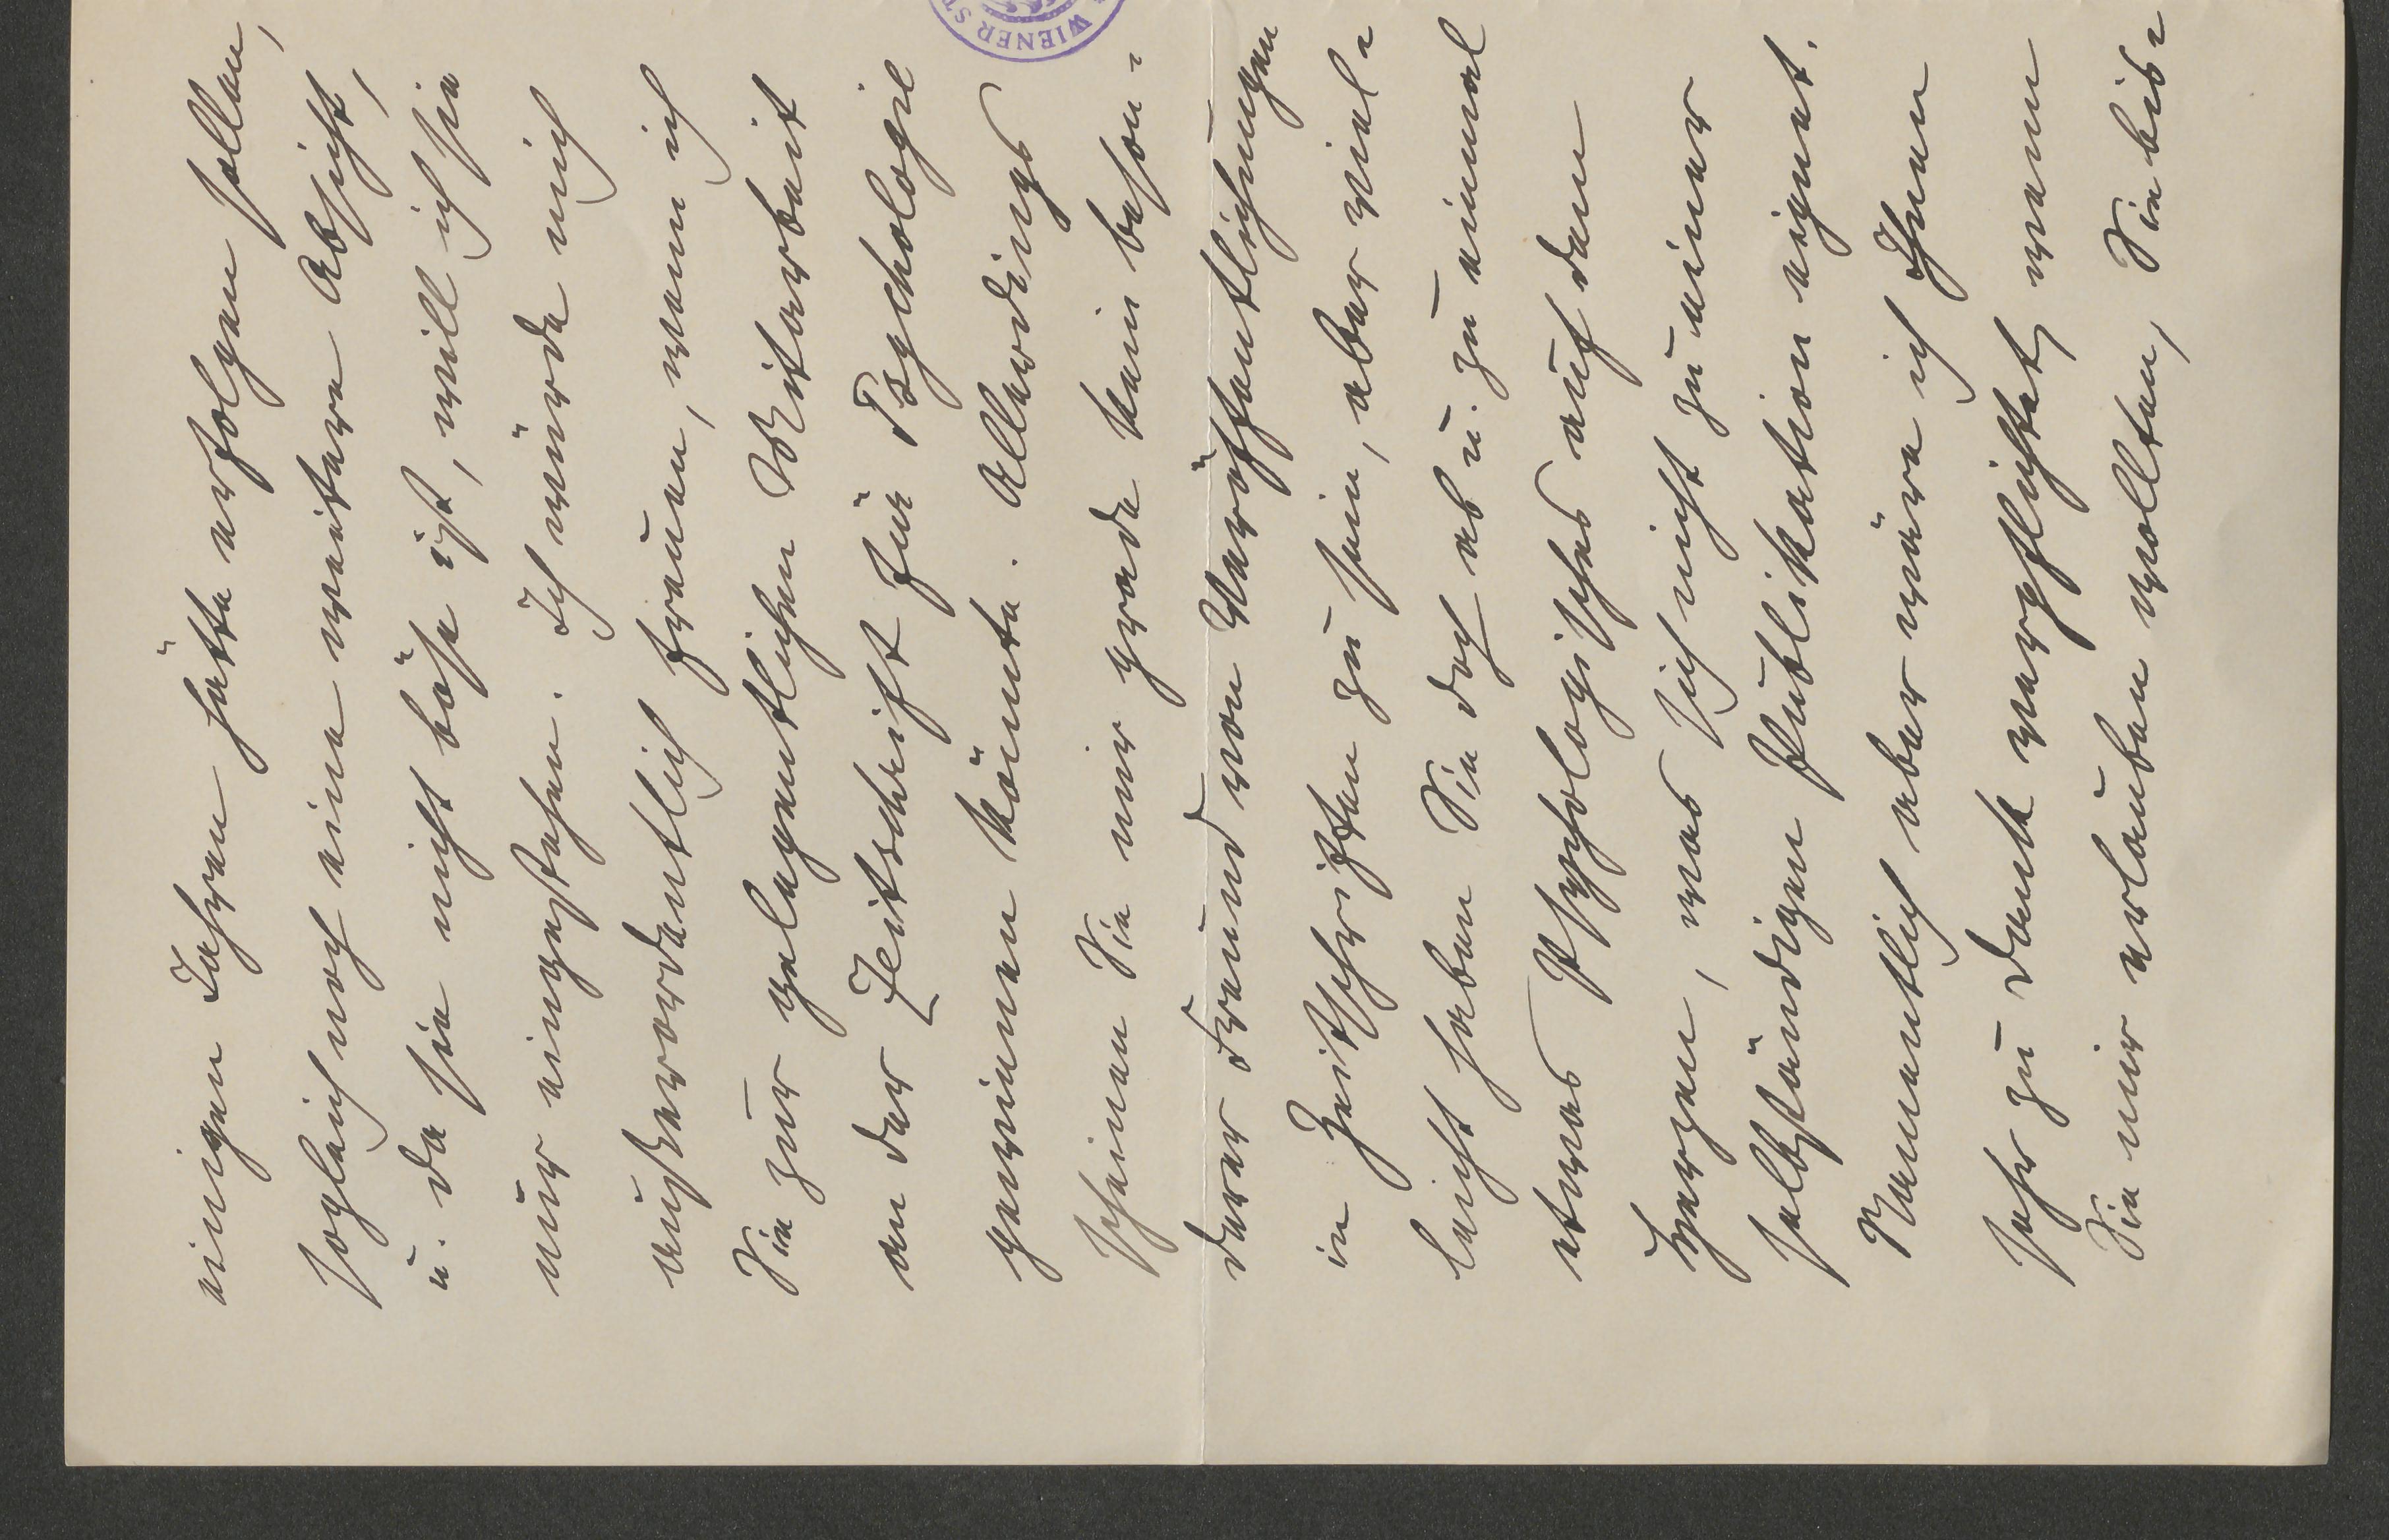 einigen Jahren hätte erfolgen sollen,
sogleich noch eine weitere Absicht,
u. da sie nicht böse ist, will ich sie
nur eingestehen. Ich würde mich
außerordentlich freuen, wenn ich
Sie zur gelegentlichen Mitarbeit
an der Zeitschrift für Psychologie
gewinnen könnte. Allerdings
scheinen Sie mir grade kein beson-
derer Freund von Veröffentlichungen
in Zeitschriften zu sein, aber viel-
leicht haben Sie doch ab u. zu einmal
etwas Psychologisches auf dem
Herzen, was sich nicht zu einer
selbständigen Publikation eignet.
Namentlich aber wäre ich Ihnen
sehr zu Dank verpflichtet, wenn
Sie mir erlauben wollten, Sie bis-
WIENER ST